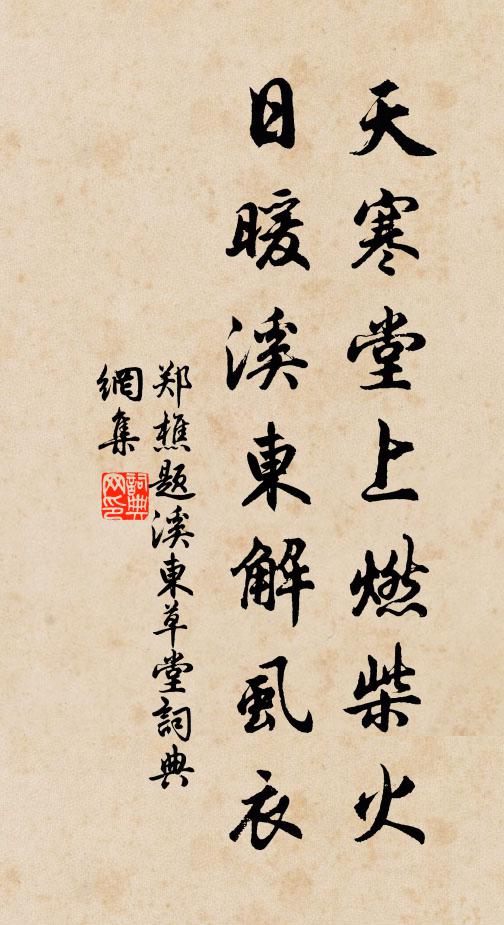 天寒堂上燃柴火
日暖溪東解虱衣
郑樵题溪東草堂詞典
網集
詞典網印